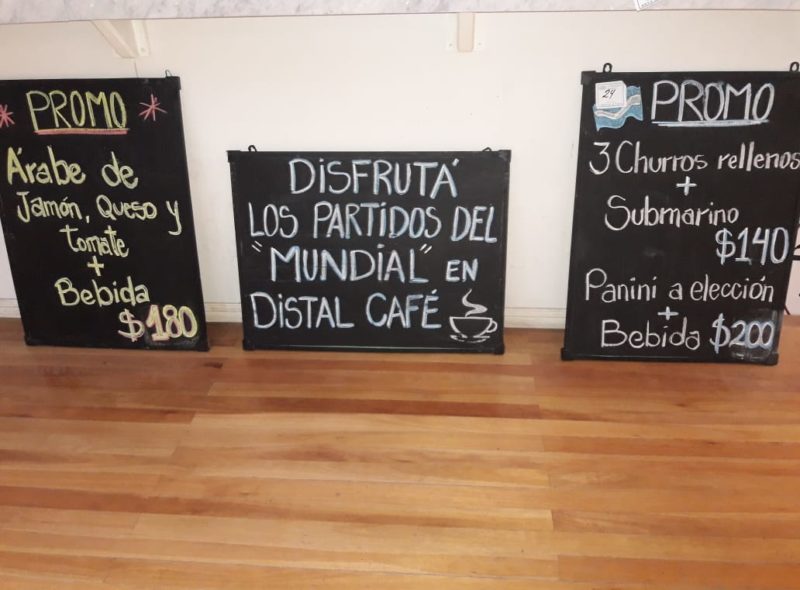 PROMO
Árabe de
Jamón, Queso y
tomate
+
Bebida
$180
DISFRUTÁ
LOS PARTIDOS DEL
"MUNDIAL" EN
DISTAL CAFÉ
24
PROMO
3 Churros rellenos
+
Submarino
$140
Panini a elección
+
Bebida $200